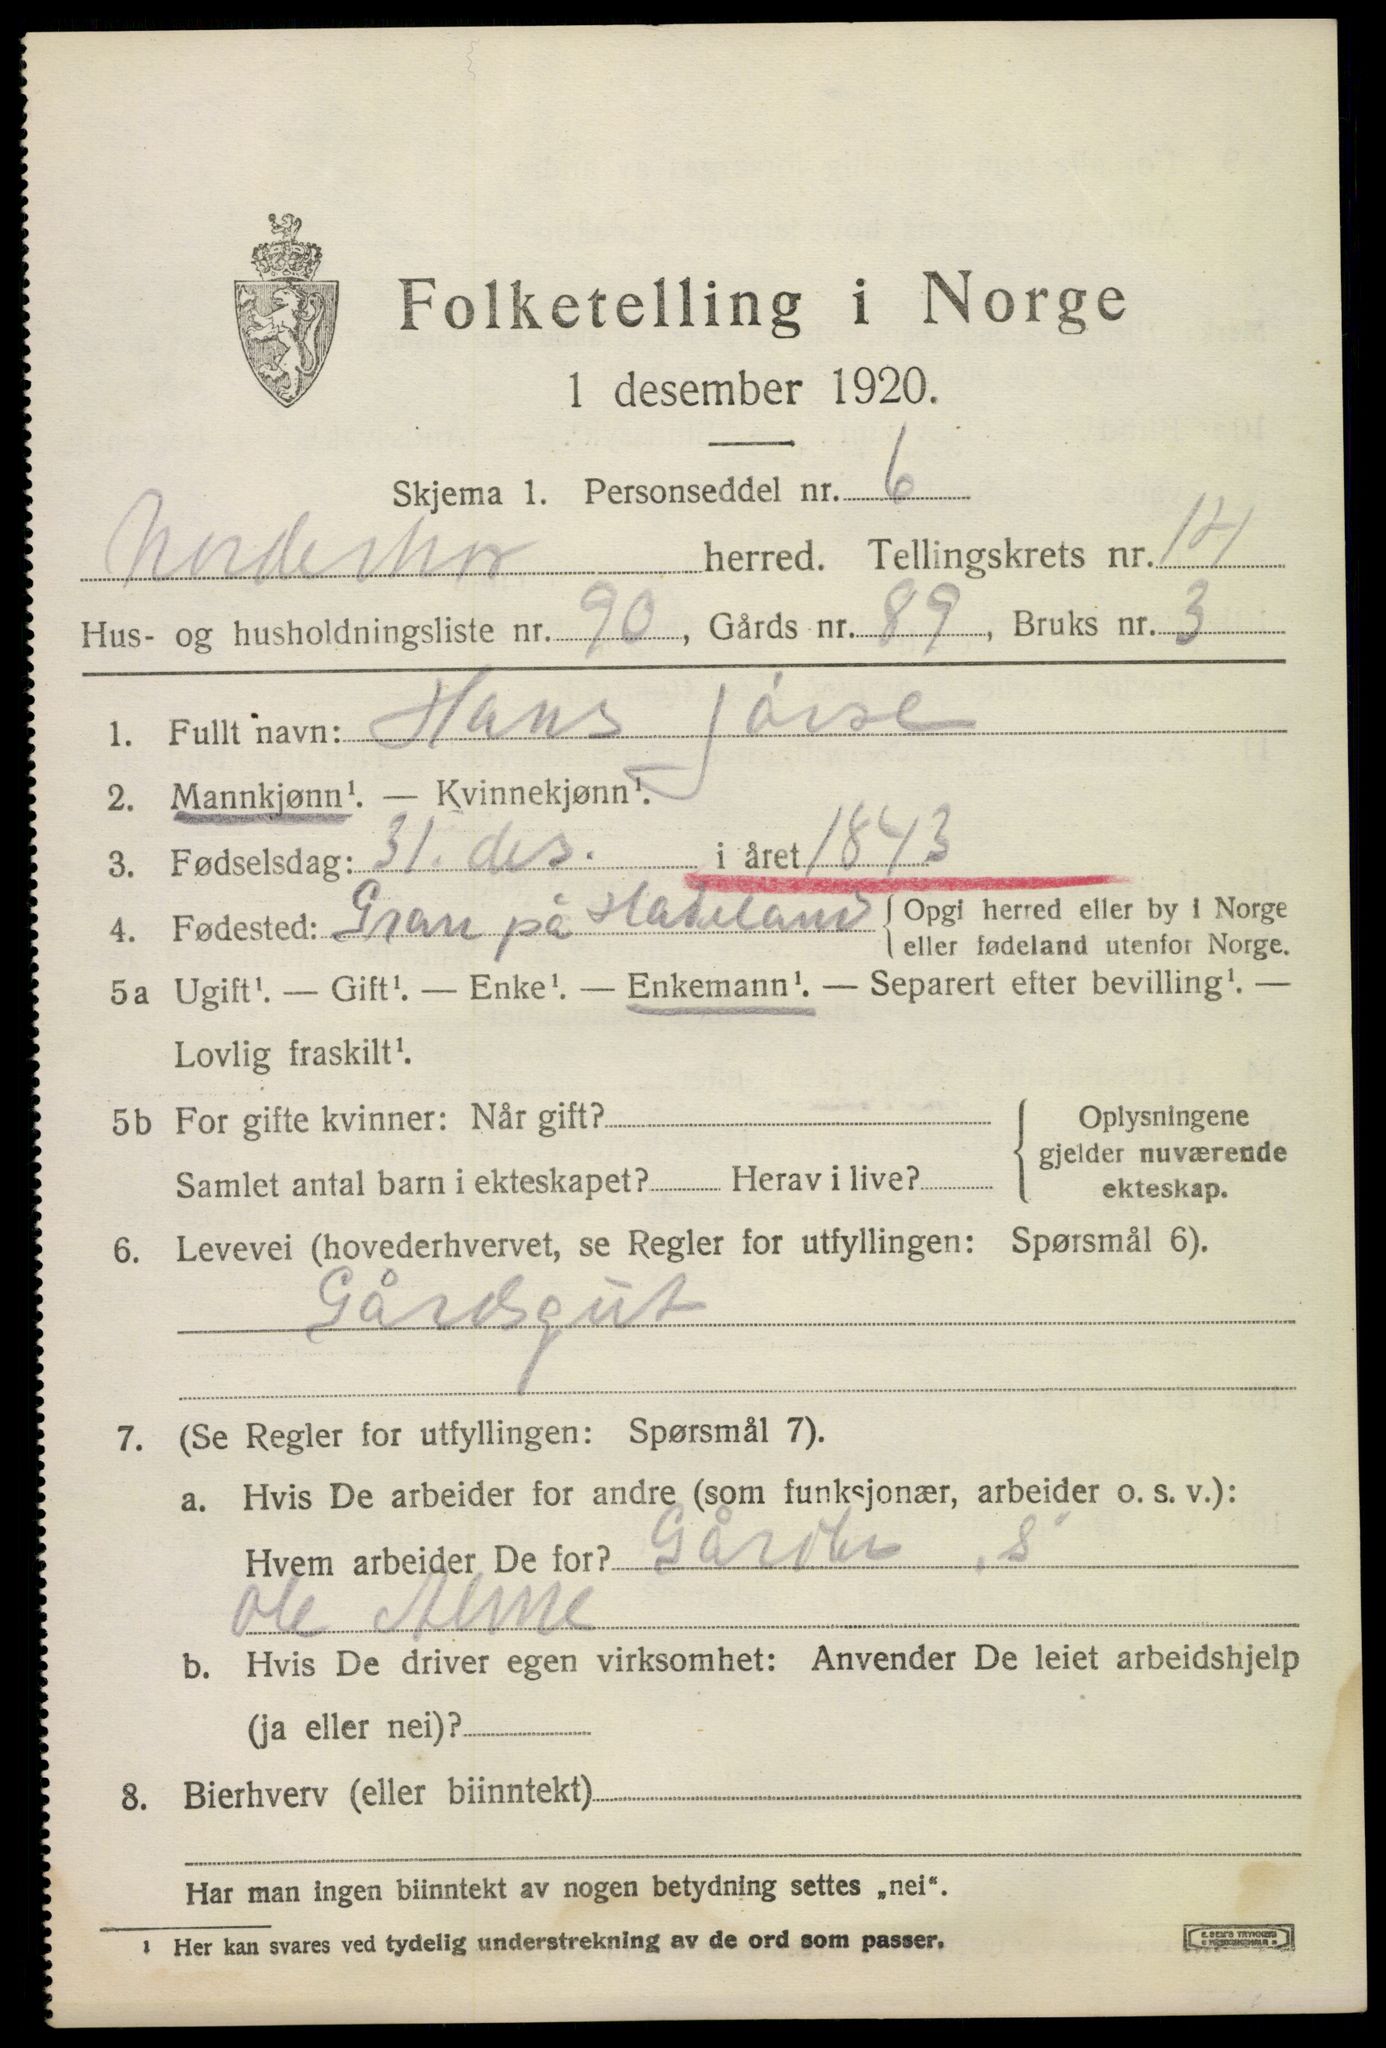 Folketelling i Norge
1 desember 1920.
Skjema 1. Personseddel nr. 6
Norderhov herred. Tellingskrets nr. 14
Hus- og husholdningsliste nr. 90, Gårds nr. 89, Bruks nr. 3
1. Fullt navn: Hans
2. Mannkjønn¹. — Kvinnekjønn¹.
3. Fødselsdag: 31. des. i året 1843
4. Fødested: Gran på Hadeland { Opgi herred eller by i Norge
eller fødeland utenfor Norge.
5a Ugift¹. — Gift¹. — Enke¹. — Enkemann¹. — Separert efter bevilling¹. —
Lovlig fraskilt¹.
5b For gifte kvinner: Når gift?
Samlet antal barn i ekteskapet? Herav i live?
{ Oplysningene
gjelder nuværende
ekteskap.
6. Levevei (hovederhvervet, se Regler for utfyllingen: Spørsmål 6).
Gårdsgut
7. (Se Regler for utfyllingen: Spørsmål 7).
a. Hvis De arbeider for andre (som funksjonær, arbeider o. s. v.):
Hvem arbeider De for? Gårdbr
Ole Alme
b. Hvis De driver egen virksomhet: Anvender De leiet arbeidshjelp
(ja eller nei)?
8. Bierhverv (eller biinntekt)
Har man ingen biinntekt av nogen betydning settes „nei“.
¹ Her kan svares ved tydelig understrekning av de ord som passer.